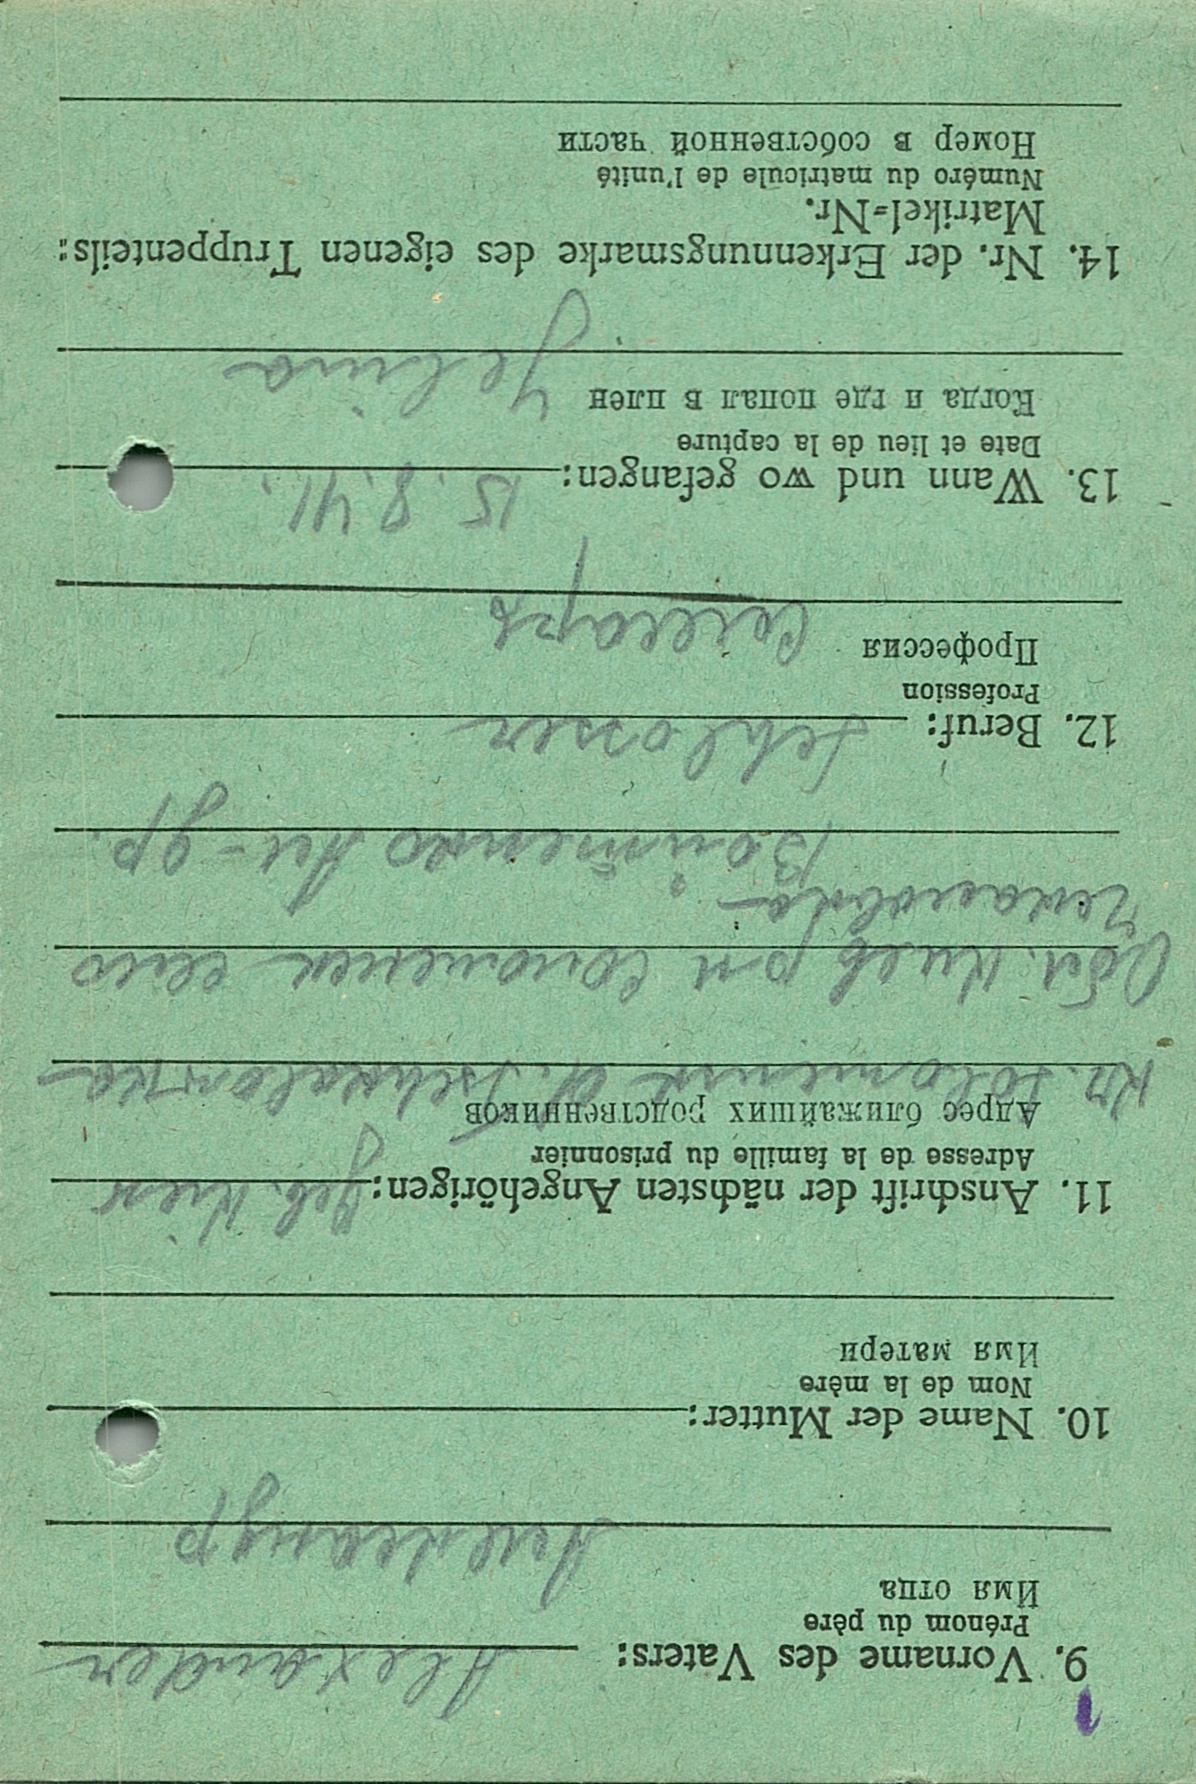 9. Vorname des Vaters: Alexander
Prénom du père
Имя отца
Александр
10. Name der Mutter:
Nom de la mère
Имя матери
11. Anschrift der nächsten Angehörigen: Geb. Kiew
Adresse de la famille du prisonnier
Адрес ближайших родственников
Kr. Solomensk d. Tschkalowka
Обл. Киев рн Соломенск село
Чкаловка
Войтенко Ал-др.
12. Beruf: Schlosser
Profession
Профессия Слесарь
13. Wann und wo gefangen: 15.8.41.
Date et lieu de la capture
Когда и где попал в плен
Jelnia
14. Nr. der Erkennungsmarke des eigenen Truppenteils:
Matrikel=Nr.
Numéro du matricule de l'unité
Номер в собственной части